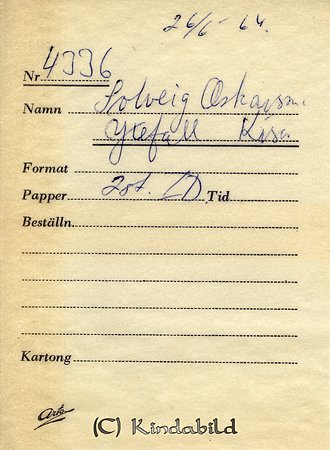 26/6-64.
Nr 4336
Namn Solveig Oskarsson.
Ytefall Kisa
Format
Papper 2st. LD Tid
Beställn.
Kartong
Arte
(C) Kindabild